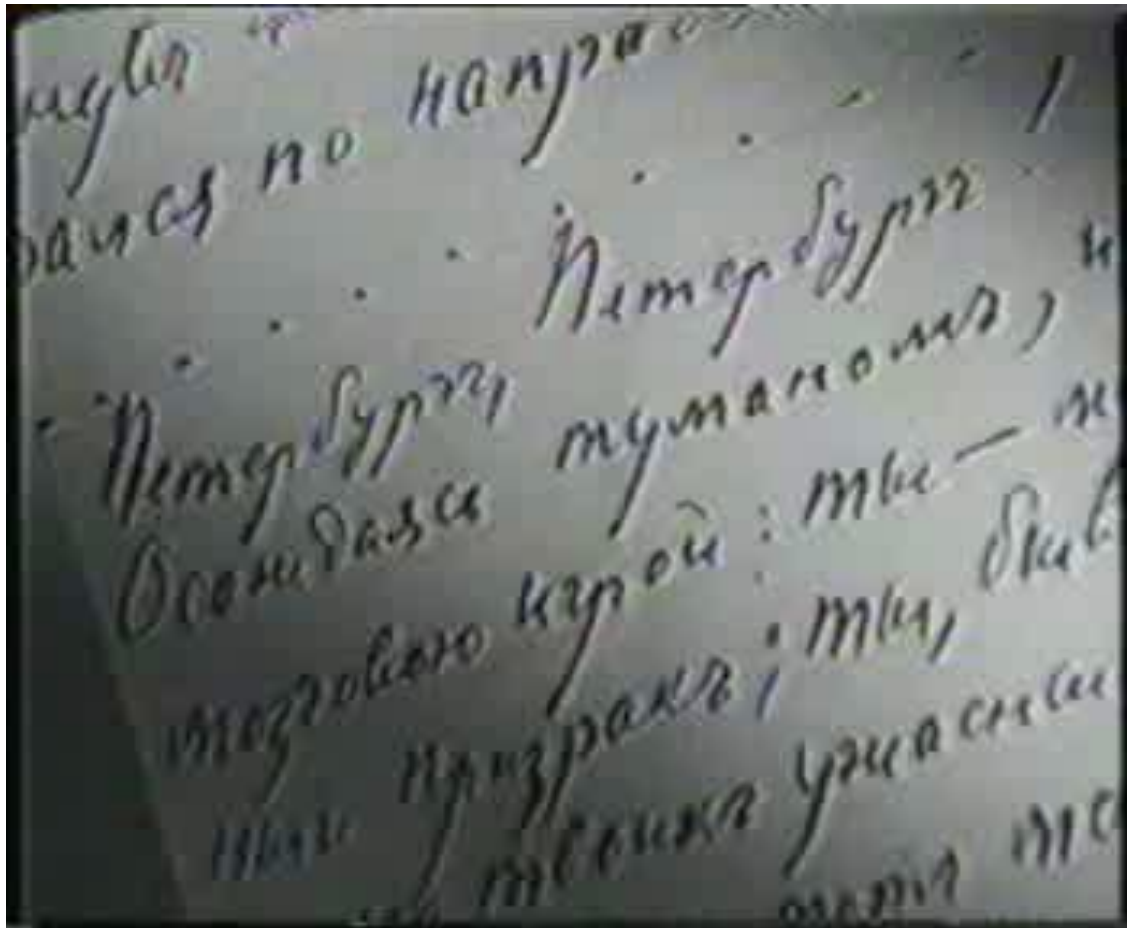 рался по направ
. . . . . . . . .
Петербургъ, Петербургъ!
Осаждаясь туманомъ, и
мозговою игрой: ты — м
ный призракъ; ты, быв
твоихъ ужасны